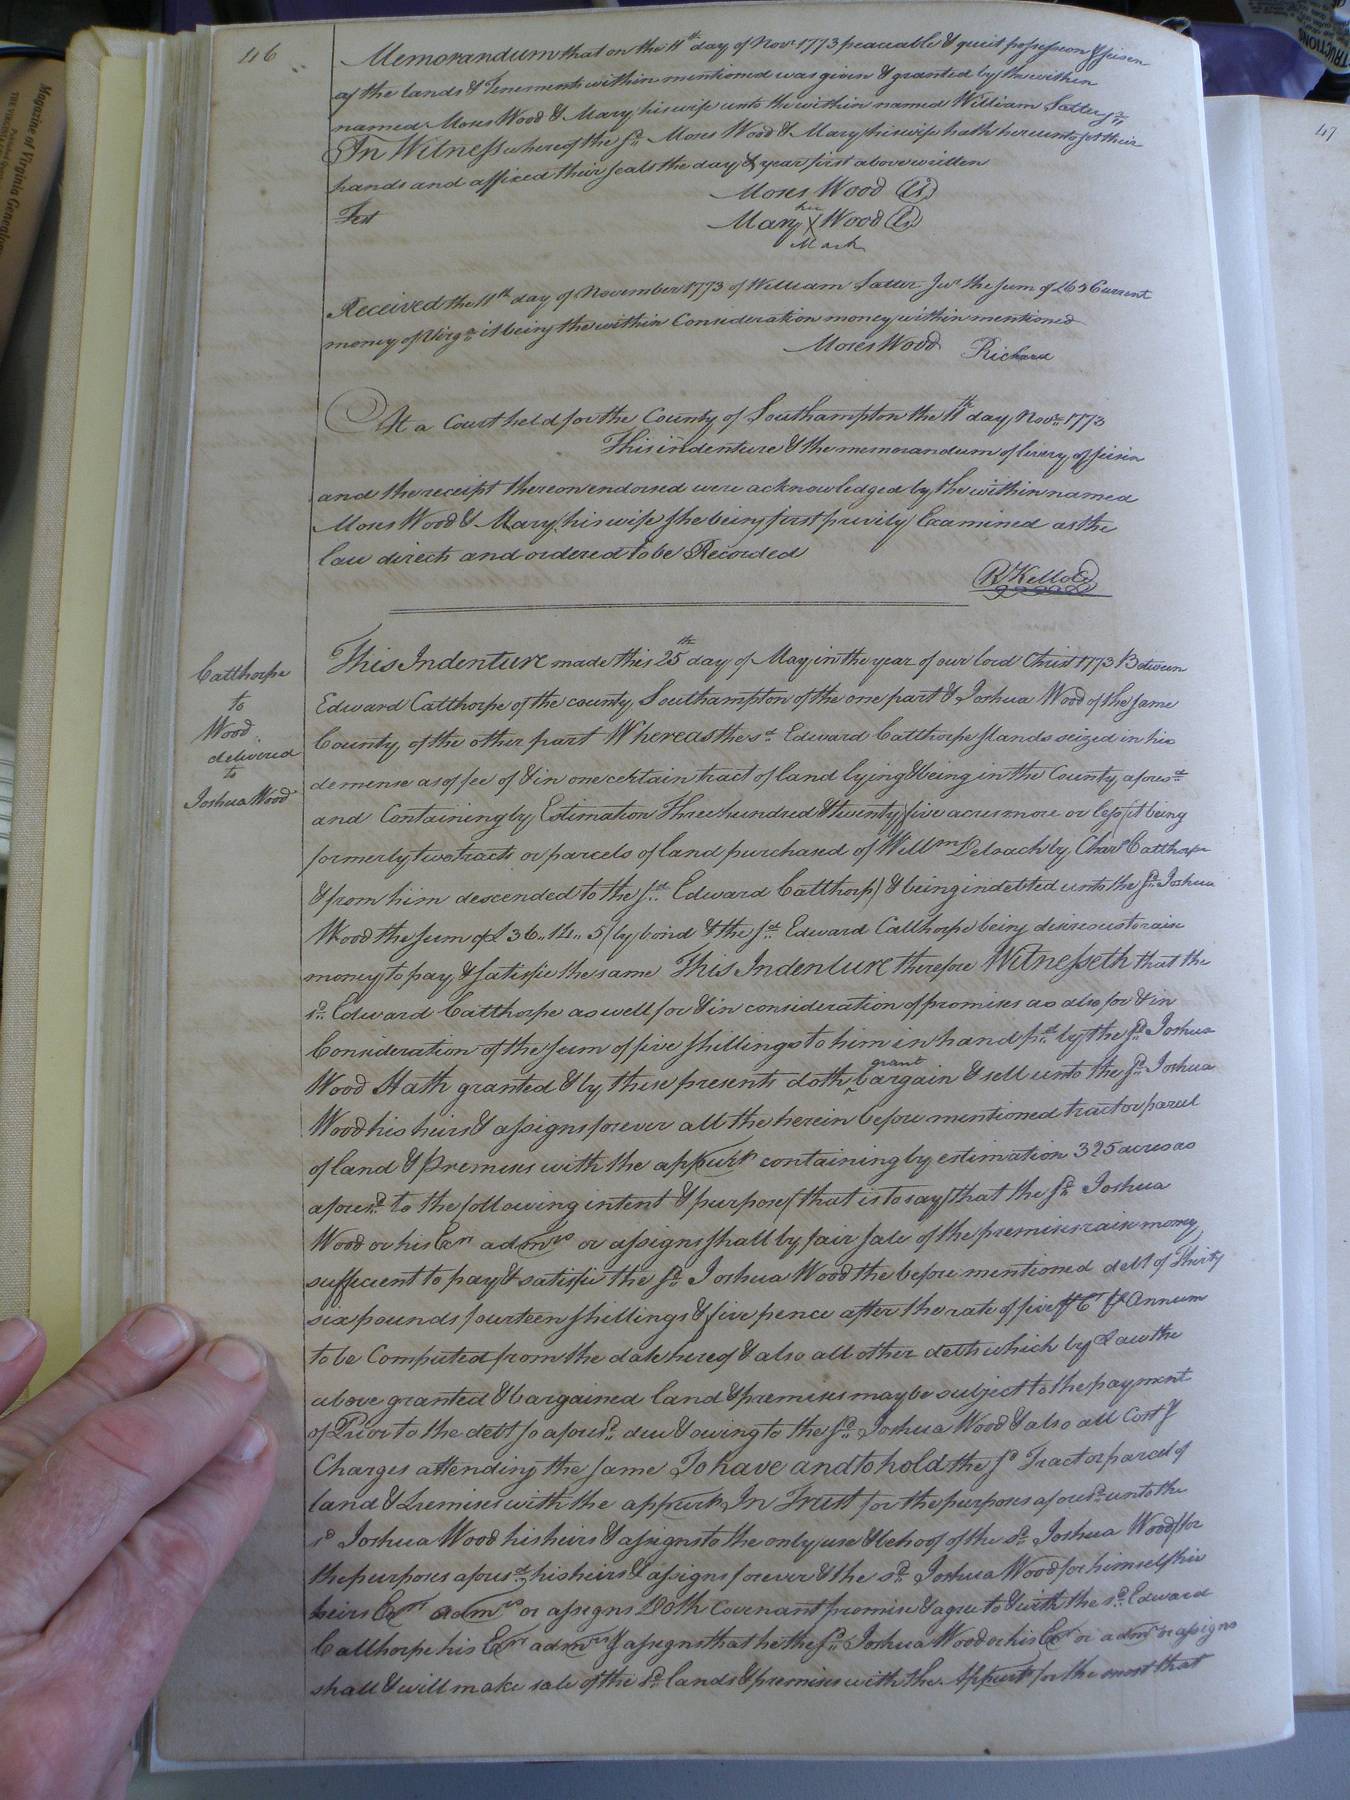 46
47
Magazine of Virginia Genealogy
Memorandum that on the 11th day of Novr 1773 peaceable & quiet possession & seisen
of the lands & Tenements within mentioned was given & granted by the within
named Moses Wood & Mary his wife unto the within named William Satter
In Witness whereof the sd. Moses Wood & Mary his wife hath hereunto set their
hands and affixed their seals the day & year first above written
Test
Moses Wood (Ls)
her
Mary X Wood (Ls)
Mark
Received the 11th day of November 1773 of William Satter Junr the sum of Current
money of Virga. it being the within Consideration money within mentioned
Moses Wood Richard
At a Court held for the County of Southampton the 11th day Novr. 1773
This indenture & the memorandum of livery of seisin
and the receipt thereon endorsed were acknowledged by the within named
Moses Wood & Mary his wife she being first privily Examined as the
law directs and ordered to be Recorded
R Kello
Calthorpe
to
Wood
delivered
to
Joshua Wood
This Indenture made this 25th day of May in the year of our lord Christ 1773 Between
Edward Calthorpe of the county Southampton of the one part & Joshua Wood of the same
County of the other part Whereas the sd. Edward Calthorpe stands seized in his
demense as of fee of & in one certain tract of land lying & being in the County aforesd.
and Containing by Estimation Three hundred & twenty five acres more or less (it being
formerly two tracts or parcels of land purchased of Willm Deloach by Chars Calthorpe
& from him descended to the sd. Edward Calthorp) & being indebted unto the sd. Joshua
Wood the sum of £36..14..5 by bond & the sd. Edward Calthorpe being desireous to raise
money to pay & satisfie the same This Indenture therefore Witnesseth that the
sd. Edward Calthorpe as well for & in consideration of promises as also for & in
Consideration of the sum of five shillings to him in hand pd. by the sd. Joshua
Wood Hath granted & by these presents doth grant bargain & sell unto the sd. Joshua
Wood his heirs & assigns forever all the herein before mentioned tract or parcel
of land & Premises with the appurts containing by estimation 325 acres as
aforesd. to the following intent & purpose (that is to say) that the sd. Joshua
Wood or his Exrs admrs or assigns shall by fair sale of the premises raise money
sufficient to pay & satisfie the sd. Joshua Wood the before mentioned debt of Thirty
six pounds fourteen shillings & five pence after the rate of five Ct Annum
to be Computed from the date hereof & also all other debts which by Law the
above granted & bargained land & premises may be subject to the payment
of Prior to the debt so aforesd. due & owing to the sd. Joshua Wood & also all Cost &
Charges attending the same To have and to hold the sd Tract or parcel of
land & Premises with the appurts In Trust for the purposes aforesd. unto the
sd Joshua Wood his heirs & assigns to the only use & behoof of the sd. Joshua Wood for
the purposes aforesd. his heirs & assigns forever & the sd. Joshua Wood for himself his
heirs Exrs admrs or assigns Doth Covenant promise & agree to & with the sd. Edward
Calthorpe his Exrs admrs & assigns that he the sd. Joshua Wood or his Exrs or admrs or assigns
shall & will make sale of the sd. lands & premises with the Appurts for the most that